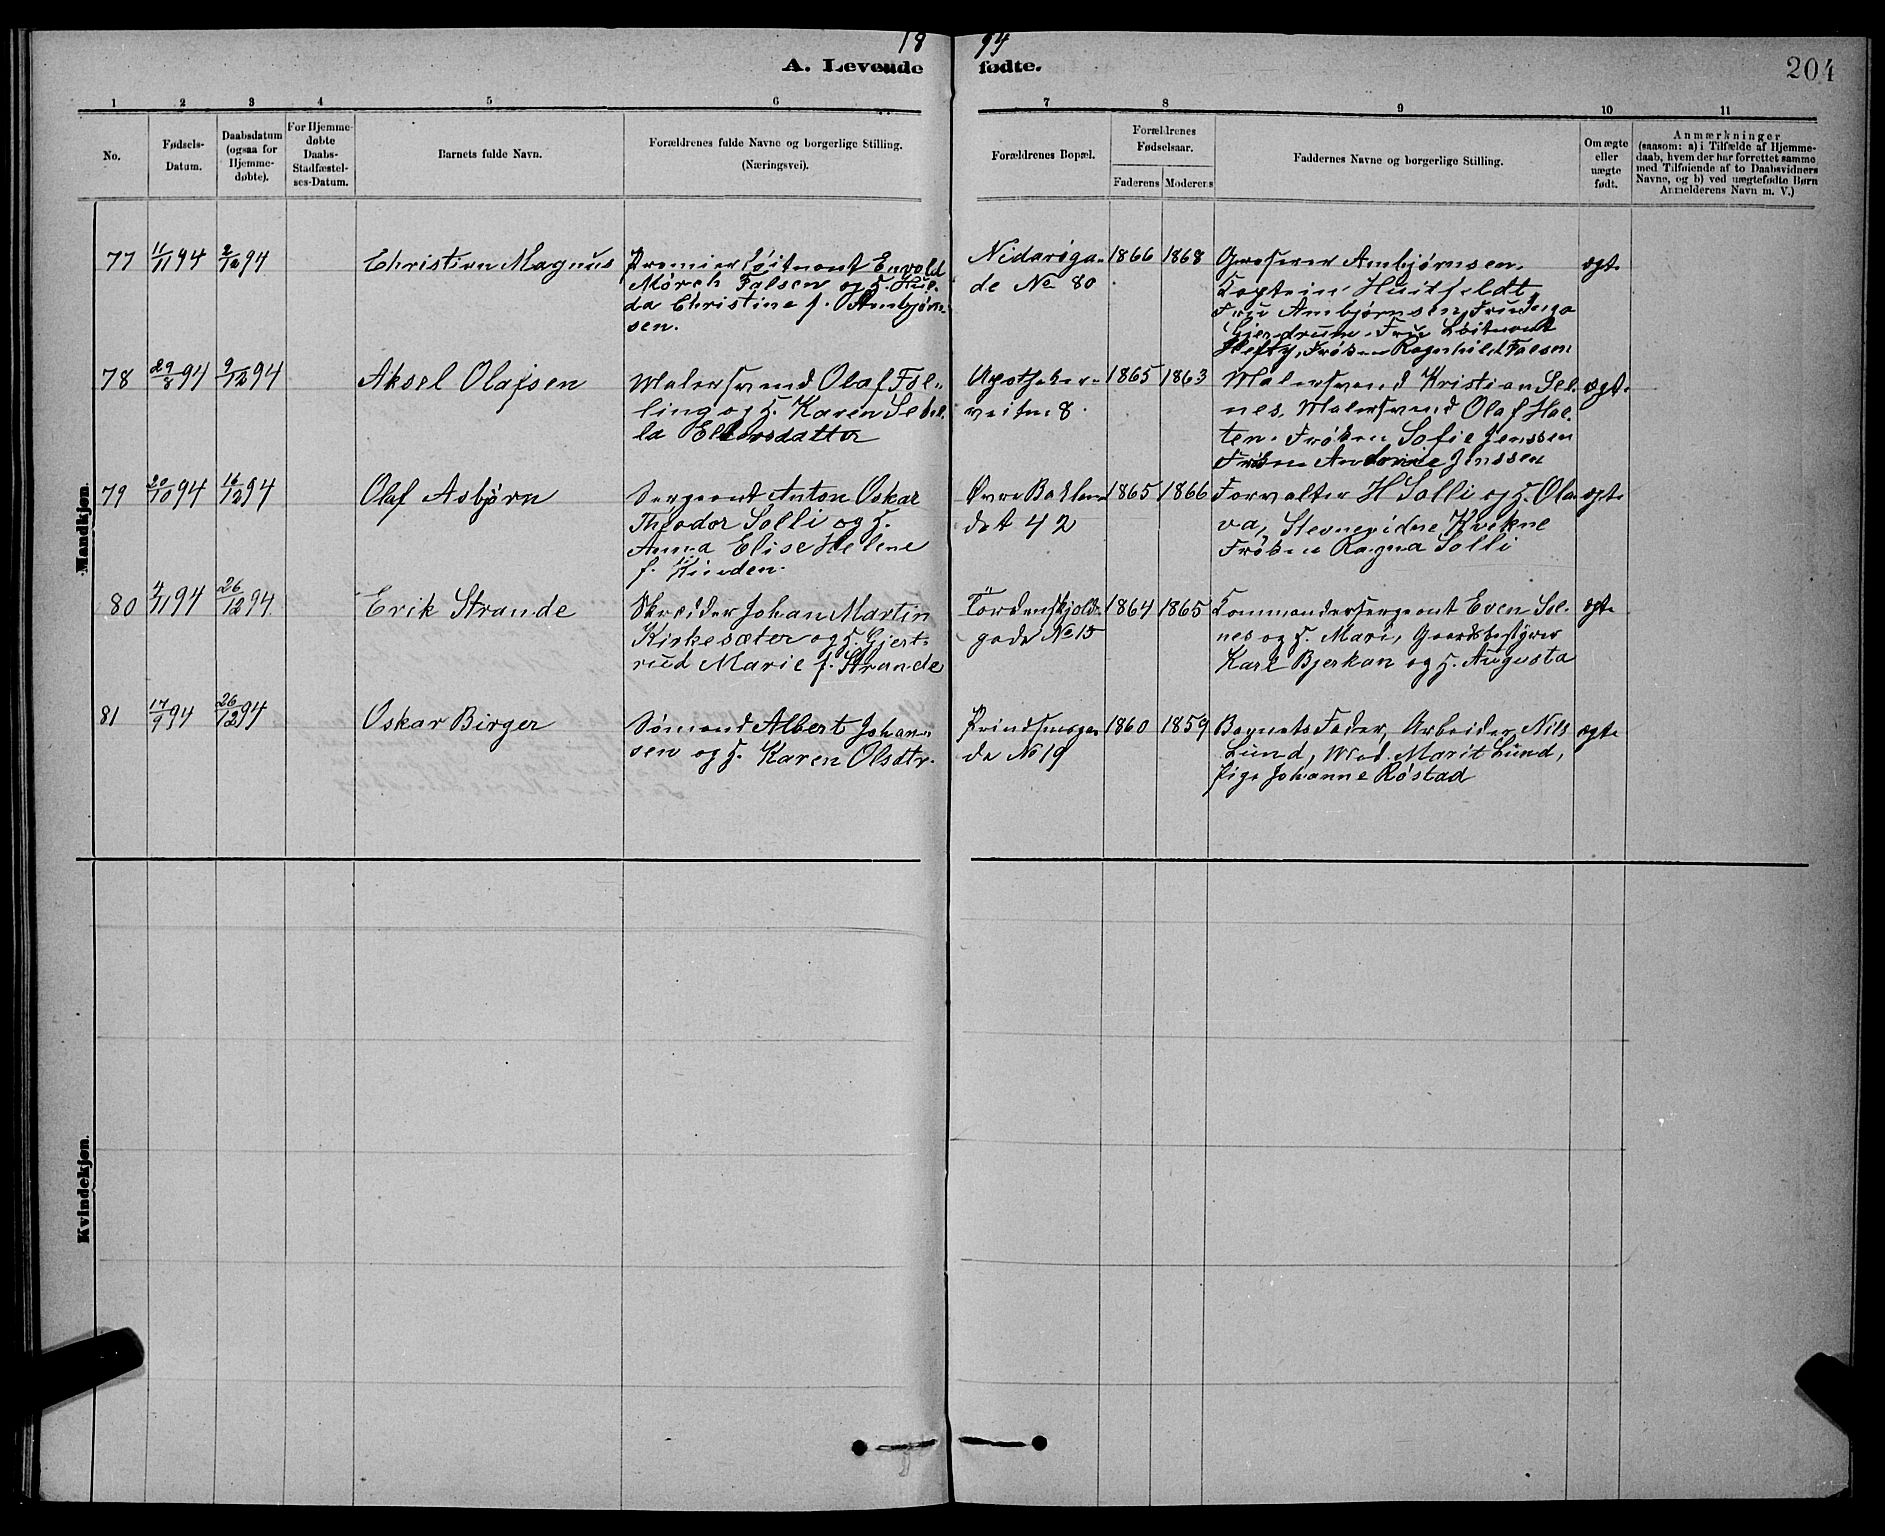 18 94
A. Levende fødte.
204
1 2 3 4 5 6 7 8 9 10 11
No.
Fødsels-
Datum.
Daabsdatum
(ogsaa for
Hjemme-
døbte).
For Hjemme-
døbte
Daabs-
Stadfæstel-
ses-Datum.
Barnets fulde Navn.
Forældrenes fulde Navne og borgerlige Stilling.
(Næringsvei).
Forældrenes Bopæl.
Forældrenes
Fødselsaar.
Faderens Moderens
Faddernes Navne og borgerlige Stilling.
Om ægte
eller
uægte
født.
Anmærkninger
(saasom: a) i Tilfælde af Hjemme-
daab, hvem der har forrettet samme
med Tilføiende af to Daabsvidners
Navne, og b) ved uægtefødte Børn
Anmelderens Navn m. V.)
Mandkjøn.
77 11/11 94 94 Christian Magnus
Premierløitnant Envold
Mørch Falsen og H. Hul-
da Christine f. Ambjørn-
sen.
Nidarøga-
de No 80
1866 1868
Grosserer Ambjørnsen,
Kaptein Huitfeldt
Fru Ambjørnsen, Fru Inga
Gjerdrum, Fru Løitnant
Hefty, Frøken Ragnhild Falsen
ægte
78 29/8 94 9/12 94 Aksel Olafsen
Malersvend Olaf Fol-
ling og H. Karen
la Ellevsdatter
Apotheker-
veiten 8
1865 1863
Malersvend Kristian Sel-
nes, Malersvend Olaf Hol-
ten, Frøken Sofie Jenssen
Frøken Jenssen
ægte
79 20/10 94 16/12 94 Olaf Asbjørn
Sergeant Anton Oskar
Theodor Solli og H.
Anna Elise Helene
f. Kinden.
Øvre Baklan-
det 42
1865 1866
Forvalter H Solli og H. Ola-
va, Stevnevidne Kvikne
Frøken Ragna Solli
ægte
80 4/11 94 26/12 94 Erik Strande
Skræder Johan Martin
Kirkesæter og H. Gjert-
rud Marie f. Strande
Tordenskjolds-
gade No 15
1864 1865
Kommandersergeant Even Sel-
nes og H. Mari, Gaardsbestyrer
Karl Bjerkan og H. Augusta
ægte
81 17/9 94 26/12 94 Oskar Birger
Sømand Albert Johan-
sen og H. Karen Olsdtr.
Prindsensga-
de No 19
1860 1859
Barnets Fader, Arbeider Nils
Lund, Mad. Marit Lund,
Pige Johanne Røstad
ægte
Kvindekjøn.